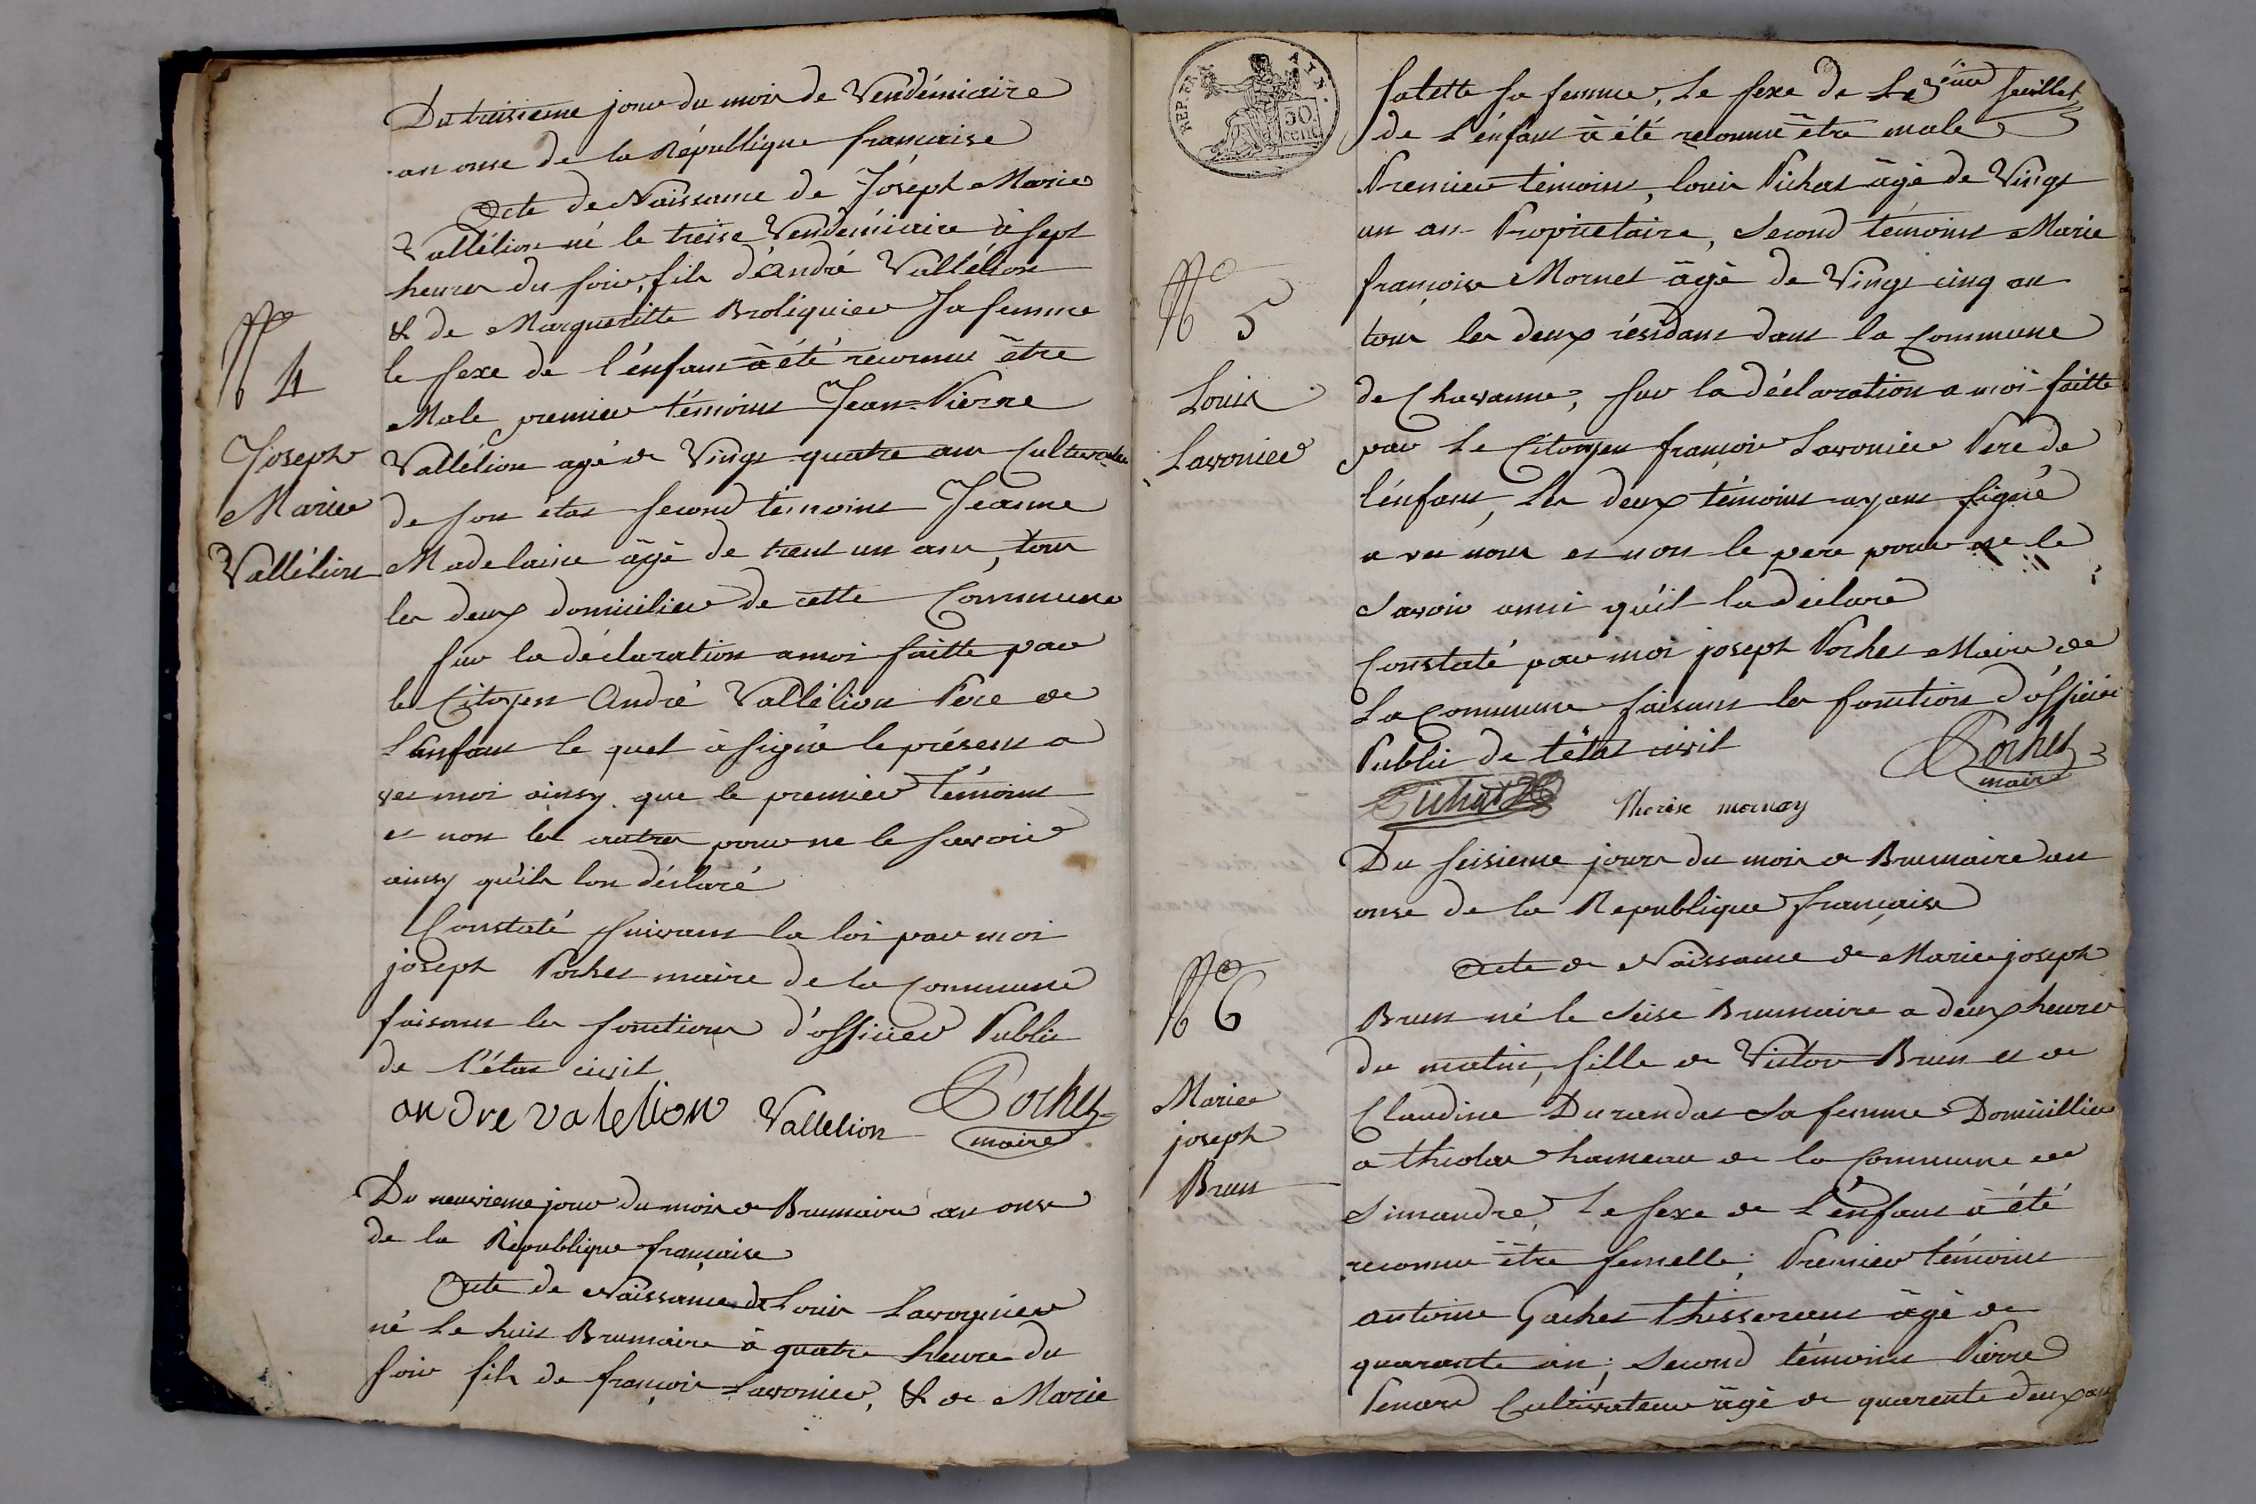 Du treisieme jour du mois de Vendémiaire
an onse de la République francaise
Acte de Naissance de Joseph Marie
Vallélion né le treise Vendémiaire à sept
heures du soir, fils d'André Vallélion
& de Margueritte Broliquier sa femme
le sexe de l'énfant à été reconnu être
Male premier témoins Jean-Pierre
Vallélion agé de Vingt quatre ans Cultivateur
de son état second témoins Jeanne
Madelaine âgé de trent un ans, tous
les deux domicilier de cette Commune
sur la déclaration a moi faitte par
le Citoyen André Vallélion Pere de
L'enfant le quel à signé le présent a
vec moi ainsy que le premier Témoins
et non les autres pour ne le savoir
ainsy qu'ils lon déclaré
Constaté suivant la loi par moi
joseph Pochet maire de la Commune
faisant les fonctions d'officier Public
de l'état civil
andre valelion Vallelion Pochet
maire
No
4
Joseph
Marie
Vallélion
Du neuvieme jour du mois de Brumaire an onse
de la République française
Acte de Naissance de Louis Lavornier
né Le huit Brumaire à quatre heure du
soir fils de françois Lavornier, & de Marie
REP. FRA. AYN.
50
cent
salette sa femme, Le sexe de feuillet
de L'énfant à été reconnu être male
Premier témoins, louis Pichat âgé de Vingt
un an Propriétaire, Second témoins Marie
françoise Mornet âgé de Vingt cinq an
tous les deux résidant dans la Commune
de Chavanne, sur la déclaration a moi faitte
par Le Citoyen françois Lavornier Pere de
l'énfant, Les deux témoins ayant signé
a vec nous et non le pere pour ne le
Savoir ainsi qu'il la déclaré
Constaté par moi joseph Pochet Maire de
La Commune faisant les fonction d'officier
Public de l'état civil Pochet
maire
Pichat Therese mornay
No
5
Louis
Lavornier
Du seisieme jours du mois de Brumaire an
onse de la Republique française
Acte de Naissance de Marie joseph
Brun né le Seise Brumaire a deux heures
du matin, fille de Victor Brun et de
Claudine Durandat Sa femme Domicillier
a thiolas hameau de la Commune de
Simandre, Le sexe de L'énfant à été
reconnu être femelle; Premier témoins
antoine Gachet thisserant âgé de
quarante an; Second témoins Pierre
Penard Cultivateur âgé de quarente deux an
No
6
Marie
joseph
Brun